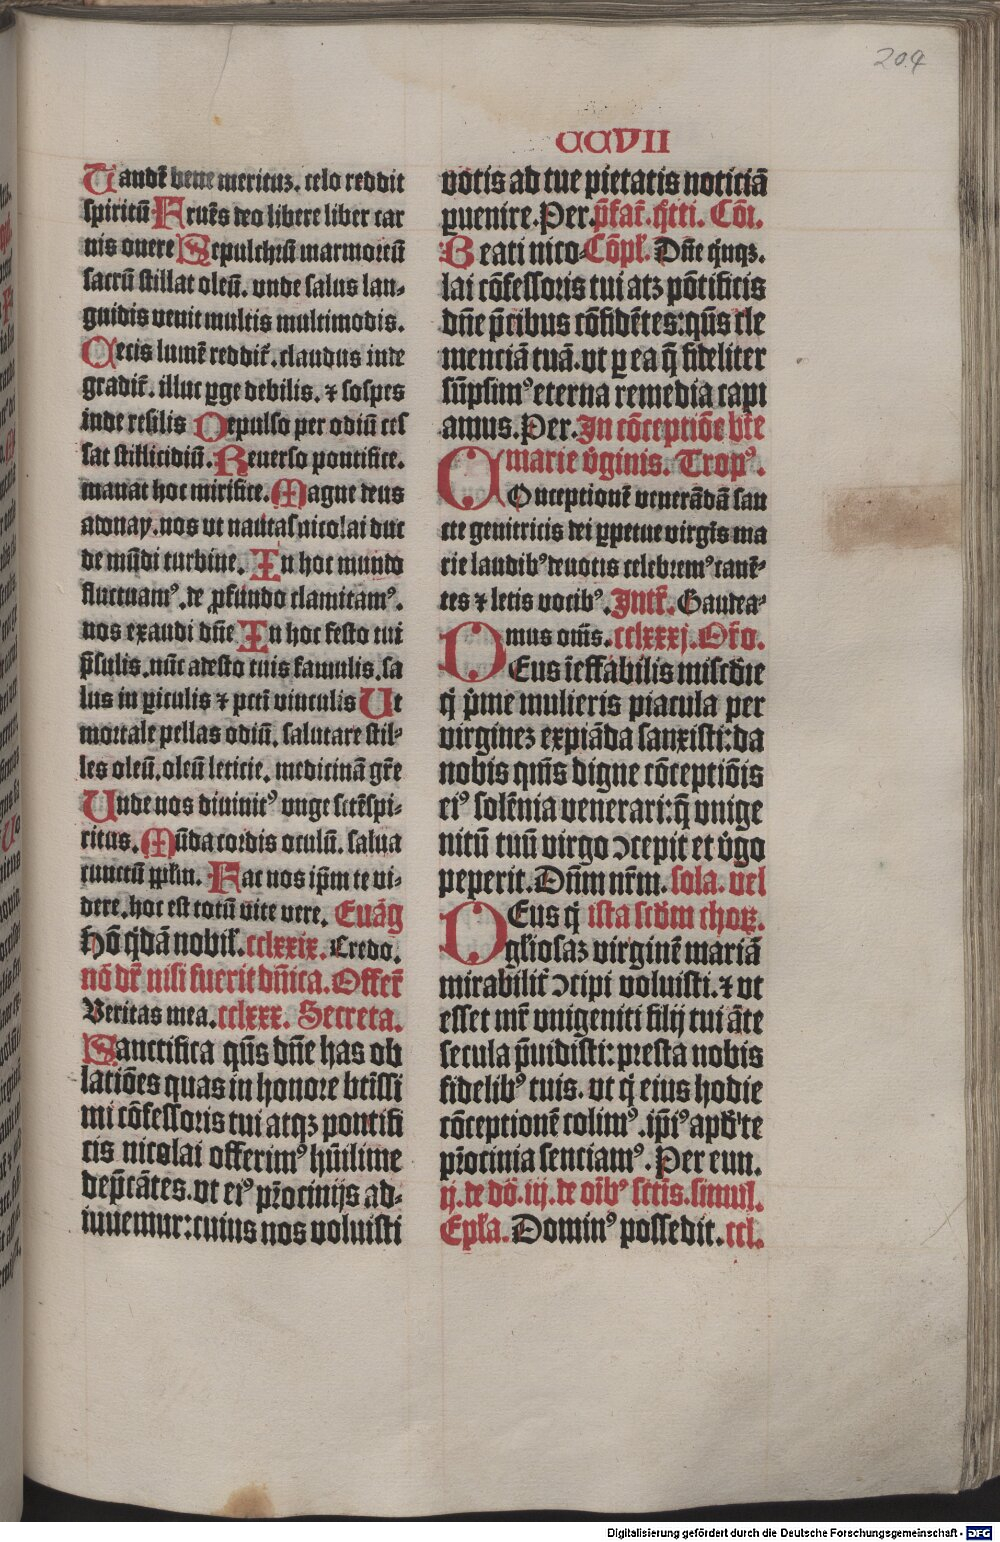 209
CCVII
Tandē bene merituz. celo reddit
spiritū Fruēs deo libere liber car
nis onere Sepulchrū marmoreū
sacrū stillat oleū. vnde salus lan-
guidis venit multis multimodis.
Cecis lumē reddit̄. claudus inde
gradit̄. illuc ꝑge debilis. ⁊ sospes
inde resilis Depulso per odiū ces
sat stillicidiū. Reuerso pontifice.
manat hoc mirifice. Magne deus
adonay. nos vt nautas nicolai duc
de mūdi turbine. In hoc mundo
fluctuamꝰ. de ꝓfundo clamitamꝰ.
nos exaudi dn̄e In hoc festo tui
p̄sulis. nūc adesto tuis famulis. sa
lus in ꝑiculis ⁊ pctī vinculis Ut
mortale pellas odiū. salutare stil-
les oleū. oleū leticie. medicinā gr̄e
Unde nos diuinitꝰ vnge sctēspi-
ritus. Mūda cordis oculū. salua
cunctū pplm. Fac nos ip̄m te vi-
dere. hoc est totū vite vere. Euāg
Hō q̇dā nobil̄. cclxxix. Credo.
nō dr̄ nisi fuerit dn̄ica. Offert̄
Veritas mea. cclxxx. Secreta.
Sanctifica qūs dn̄e has ob
latiōes quas in honore btīssi
mi cōfessoris tui atqꝫ pontifi
cis nicolai offerimꝰ hūilime
dep̄cātes. vt eiꝰ pr̄ocinijs ad-
iuuemur: cuius nos voluisti
vōtis ad tue pietatis noticiā
ꝑuenire. Per. p̄fat̄. q̄tti. Cōi.
Beati nico- Cōpl̄. Dn̄e q̇nqꝫ.
lai cōfessoris tui atꝫ pōtificis
dn̄e p̄cibus cōfidētes: qūs cle
menciā tuā. vt ꝑ ea q̄ fideliter
sūpsimꝰ eterna remedia capi
amus. Per. In cōceptiōe bt̄e
marie v̇ginis. Tropꝰ.
COnceptionē venerādā san
cte genitricis dei ꝑpetue virgīs ma
rie laudibꝰ deuotis celebremꝰ canē-
tes ⁊ letis vocibꝰ. Intr̄. Gaudea-
mus om̄s. cclxxxj. Or̄o.
DEus īeffabilis mise̅die
q̇ p̄me mulieris piacula per
virginez expiāda sanxisti: da
nobis qūs digne cōceptiōis
eiꝰ solēnia venerari: q̄ vnige
nitū tuū virgo ↄcepit et v̇go
peperit. Dn̄m nr̄m. sola. vel
DEus q̇ ista scd̄m choꝝ.
gliosaz virginē mariā
mirabilit̄ ↄcipi voluisti. ⁊ vt
esset mr̄ vnigeniti filij tui āte
secula p̄uidisti: presta nobis
fidelibꝰ tuis. vt q̇ eius hodie
cōceptionē colimꝰ. ip̄iꝰ apd̄ te
pr̄ocinia senciamꝰ. Per eun.
ij. de dō. iij. de oībꝰ sctis. simul.
Epl̄a. Dominꝰ possedit. ccl.
Digitalisierung gefördert durch die Deutsche Forschungsgemeinschaft - DFG